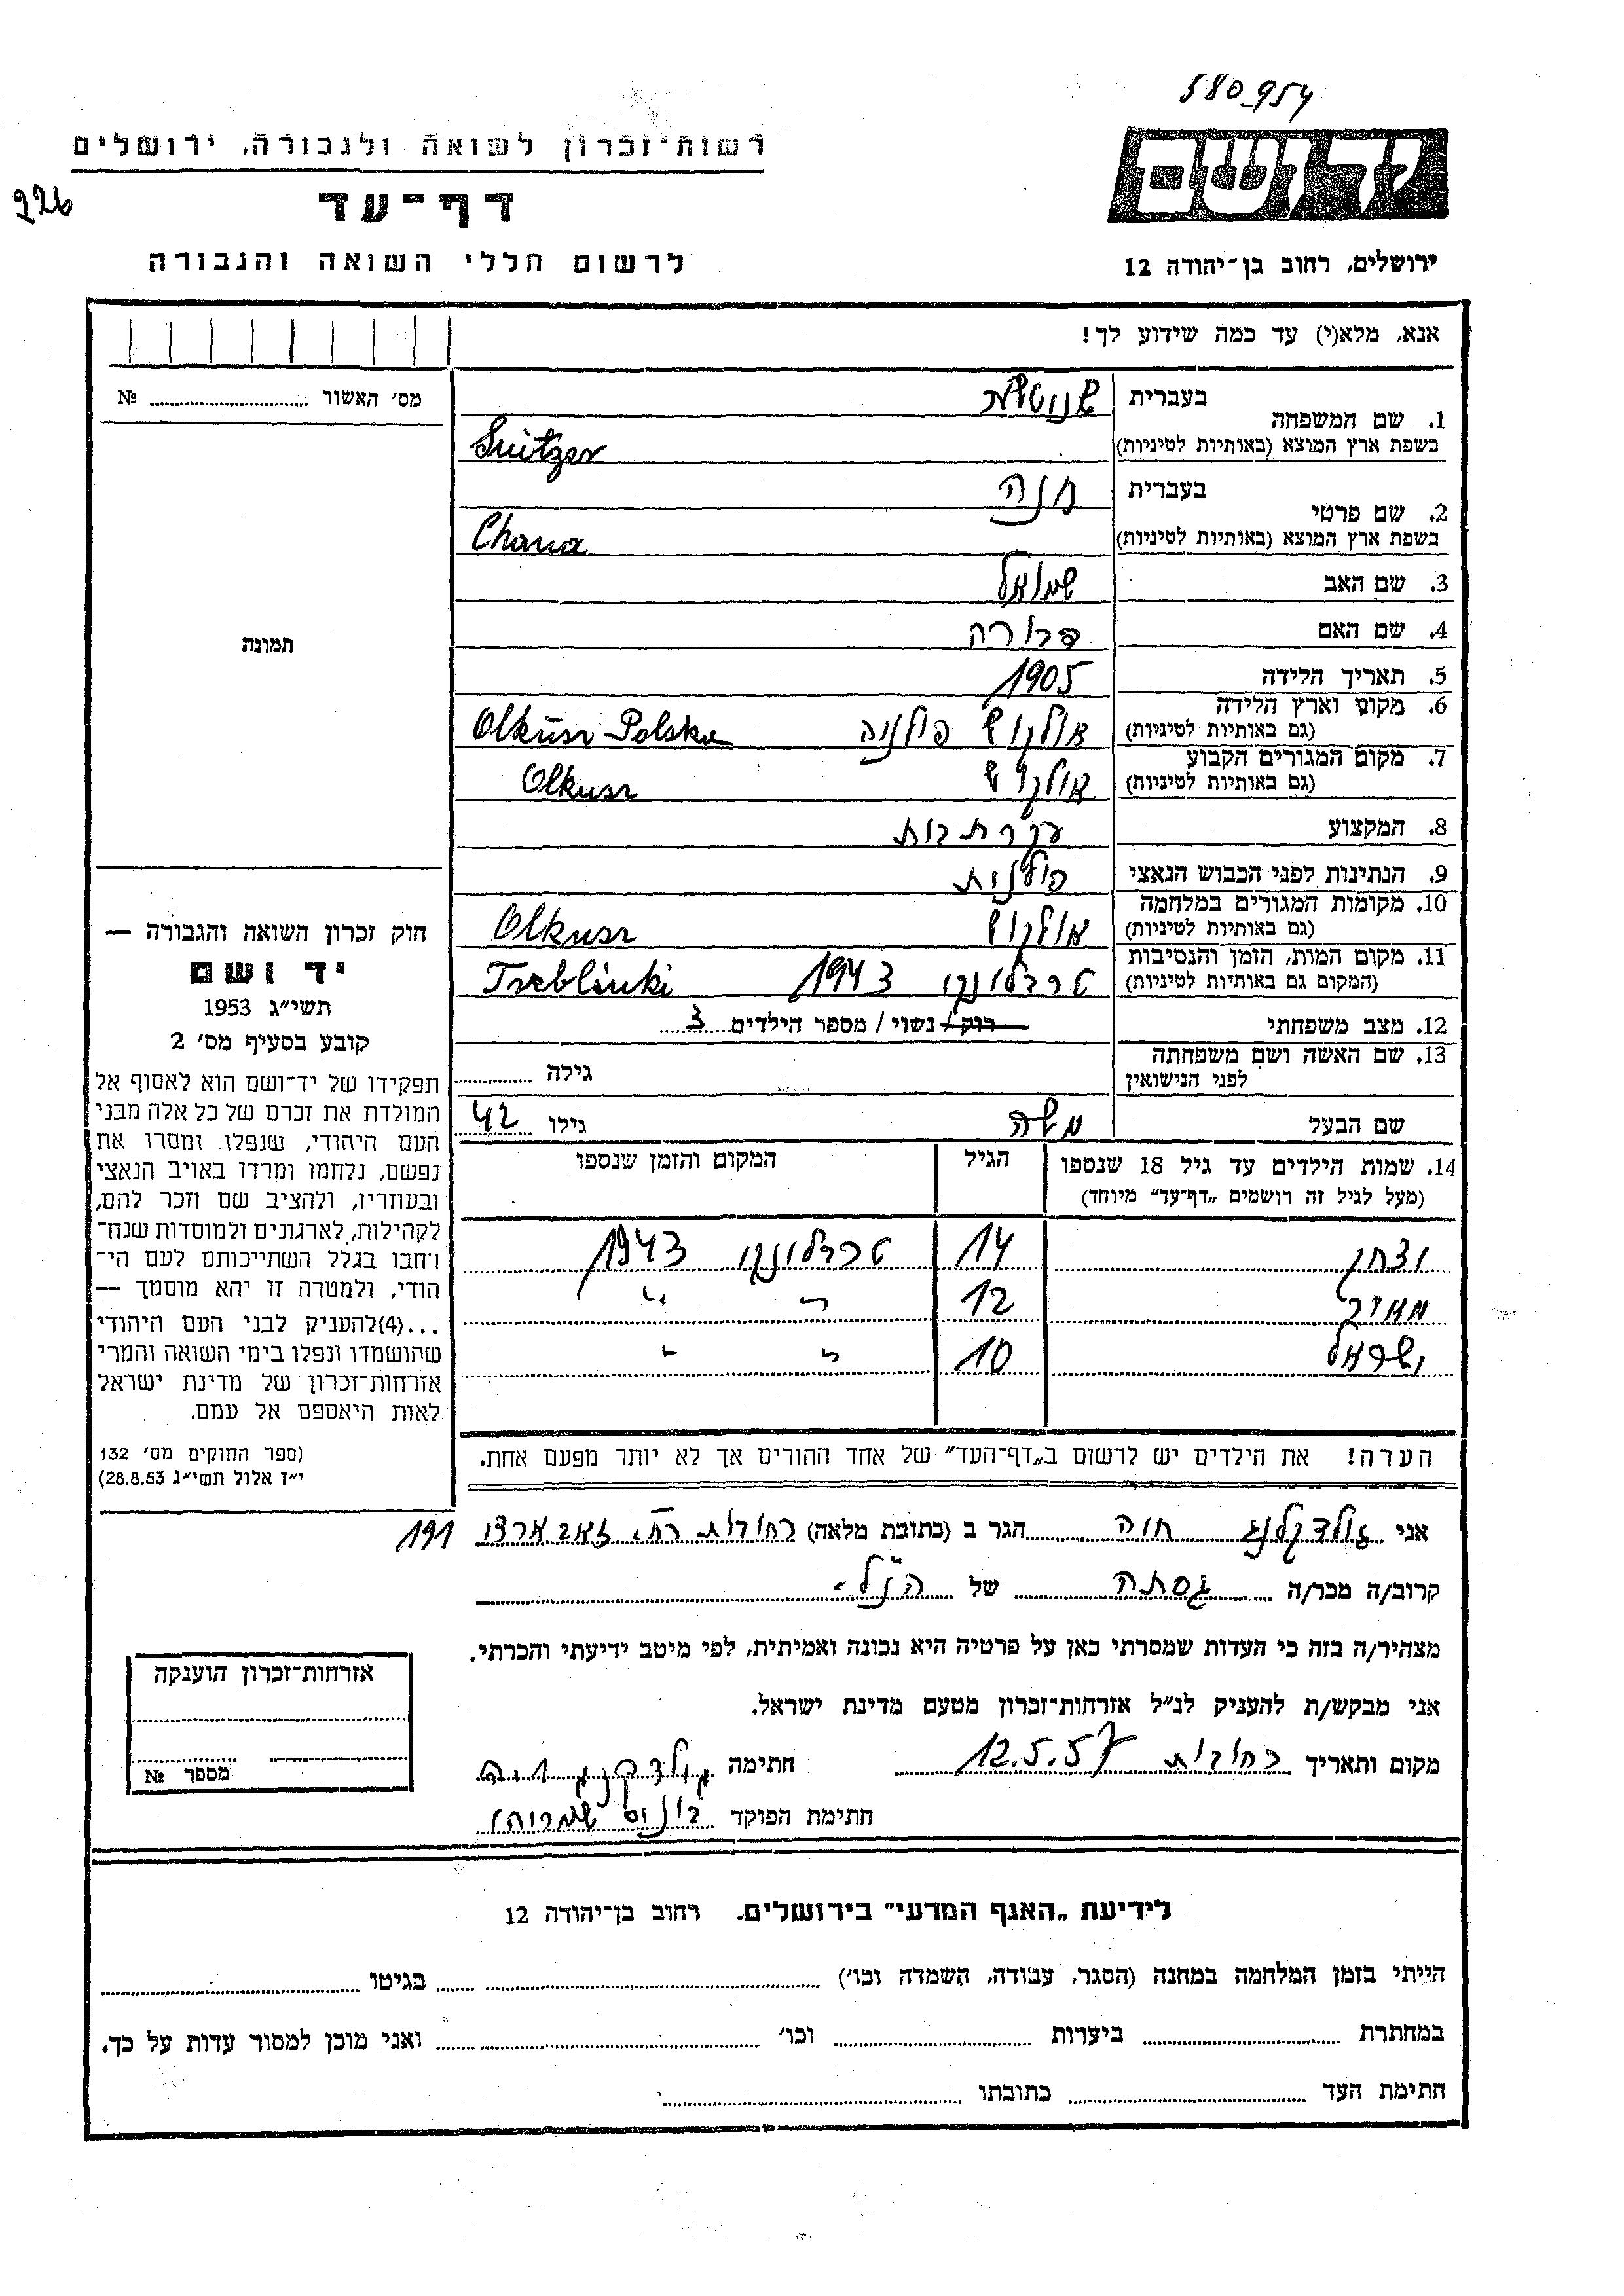 580954
יד ושם
רשות־זכרון לשואה ולגבורה, ירושלים
226
דף־עד
ירושלים, רחוב בן־יהודה 12
לרשום חללי השואה והגבורה
אנא, מלא(י) עד כמה שידוע לך!
מס' האשור № 
1. שם המשפחה
בעברית
בשפת ארץ המוצא (באותיות לטיניות)
2. שם פרטי
בעברית חנה
בשפת ארץ המוצא (באותיות לטיניות) Chana
3. שם האב שמואל
4. שם האם דבורה
5. תאריך הלידה 1905
6. מקום וארץ הלידה
(גם באותיות לטיניות) אולקוש פולניה Olkusz Polska
7. מקום המגורים הקבוע
(גם באותיות לטיניות) אולקוש Olkusz
8. המקצוע עקרת בית
9. הנתינות לפני הכבוש הנאצי פולנית
10. מקומות המגורים במלחמה
(גם באותיות לטיניות) אולקוש Olkusz
11. מקום המות, הזמן והנסיבות
(המקום גם באותיות לטיניות) טרבלינקי 1943 Treblinki
12. מצב משפחתי רוק/נשוי/ מספר הילדים 3
13. שם האשה ושם משפחתה
לפני הנישואין גילה
שם הבעל משה גילו 42
14. שמות הילדים עד גיל 18 שנספו
(מעל לגיל זה רושמים „דף־עד" מיוחד)
הגיל
המקום והזמן שנספו
יצחק 14 טרבלינקי 1943
מאיר 12 " "
ישראל 10 " "
הערה! את הילדים יש לרשום ב„דף־העד" של אחד ההורים אך לא יותר מפעם אחת.
תמונה
חוק זכרון השואה והגבורה —
יד ושם
תשי"ג 1953
קובע בסעיף מס' 2
תפקידו של יד־ושם הוא לאסוף אל
המולדת את זכרם של כל אלה מבני
העם היהודי, שנפלו ומסרו את
נפשם, נלחמו ומרדו באויב הנאצי
ובעוזריו, ולהציב שם וזכר להם,
לקהילות, לארגונים ולמוסדות שנח־
רחבו בגלל השתייכותם לעם הי־
הודי, ולמטרה זו יהא מוסמך —
...(4)להעניק לבני העם היהודי
שהושמדו ונפלו בימי השואה והמרי
אזרחות־זכרון של מדינת ישראל
לאות היאספם אל עמם.
(ספר החוקים מס' 132
י"ז אלול תשי"ג 28.8.53)
אני חוה הגר ב (כתובת מלאה) רחובות רח' 191
קרוב/ה מכר/ה גסתה של הנ"ל
מצהיר/ה בזה כי העדות שמסרתי כאן על פרטיה היא נכונה ואמיתית, לפי מיטב ידיעתי והכרתי.
אני מבקש/ת להעניק לנ"ל אזרחות־זכרון מטעם מדינת ישראל.
מקום ותאריך רחובות 12.5.57 חתימה
חתימת הפוקד
אזרחות־זכרון הוענקה
מספר №
לידיעת „האגף המדעי" בירושלים. רחוב בן־יהודה 12
הייתי בזמן המלחמה במחנה (הסגר, עבודה, השמדה וכו') בגיטו
במחתרת ביערות וכו' ואני מוכן למסור עדות על כך.
חתימת העד כתובתו